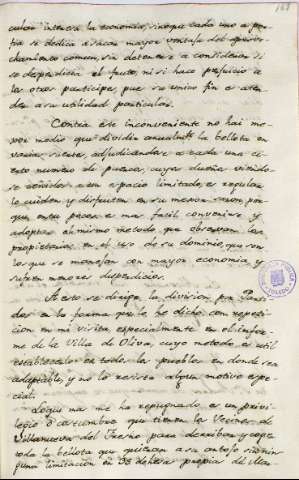 168
cular interesa la economia, sino que cada uno a por
fia se dedica a sacar mayor ventaja del aprove-
chamiento comun, sin detenerse a considerar si
se desperdicia el fruto, ni si hace perjuicio a
los otros participes, pues su unico fin es aten-
der a su utilidad particular.
Contra este inconveniente no hai me
jor medio que dividir anualmte. la bellota en
varias suertes, adjudicandose a cada una ci-
erto numero de puercos, cuyos dueños viendo-
se ceñidos a un espacio limitado, es regular
lo cuiden y disfruten en su menor razon, por-
que entre pocos es mas facil convenirse y
adoptar el mismo metodo que observan los
propietarios en el uso de su dominio, que son
los que se manejan con mayor economia y
sufren menores desperdicios.
A esto se dirige la division por Parti-
dos en la forma que le he dicho con repeti-
cion en mi visita especialmente en el infor-
me de la Villa de Oliva, cuyo metodo es util
establecerlo en todos los pueblos en donde sea
adaptable, y no lo resista algun motivo espe-
cial.
Lo que mas me ha repugnado es un privi-
legio o costumbre que tienen los Vecinos de
Villanueva del Fresno para derribar y coger
toda la bellota que quieran a su antojo sin nin-
guna limitacion en 33 dehesas propias del Mar-
BIBLIOTECA PUBLICA
TOLEDO